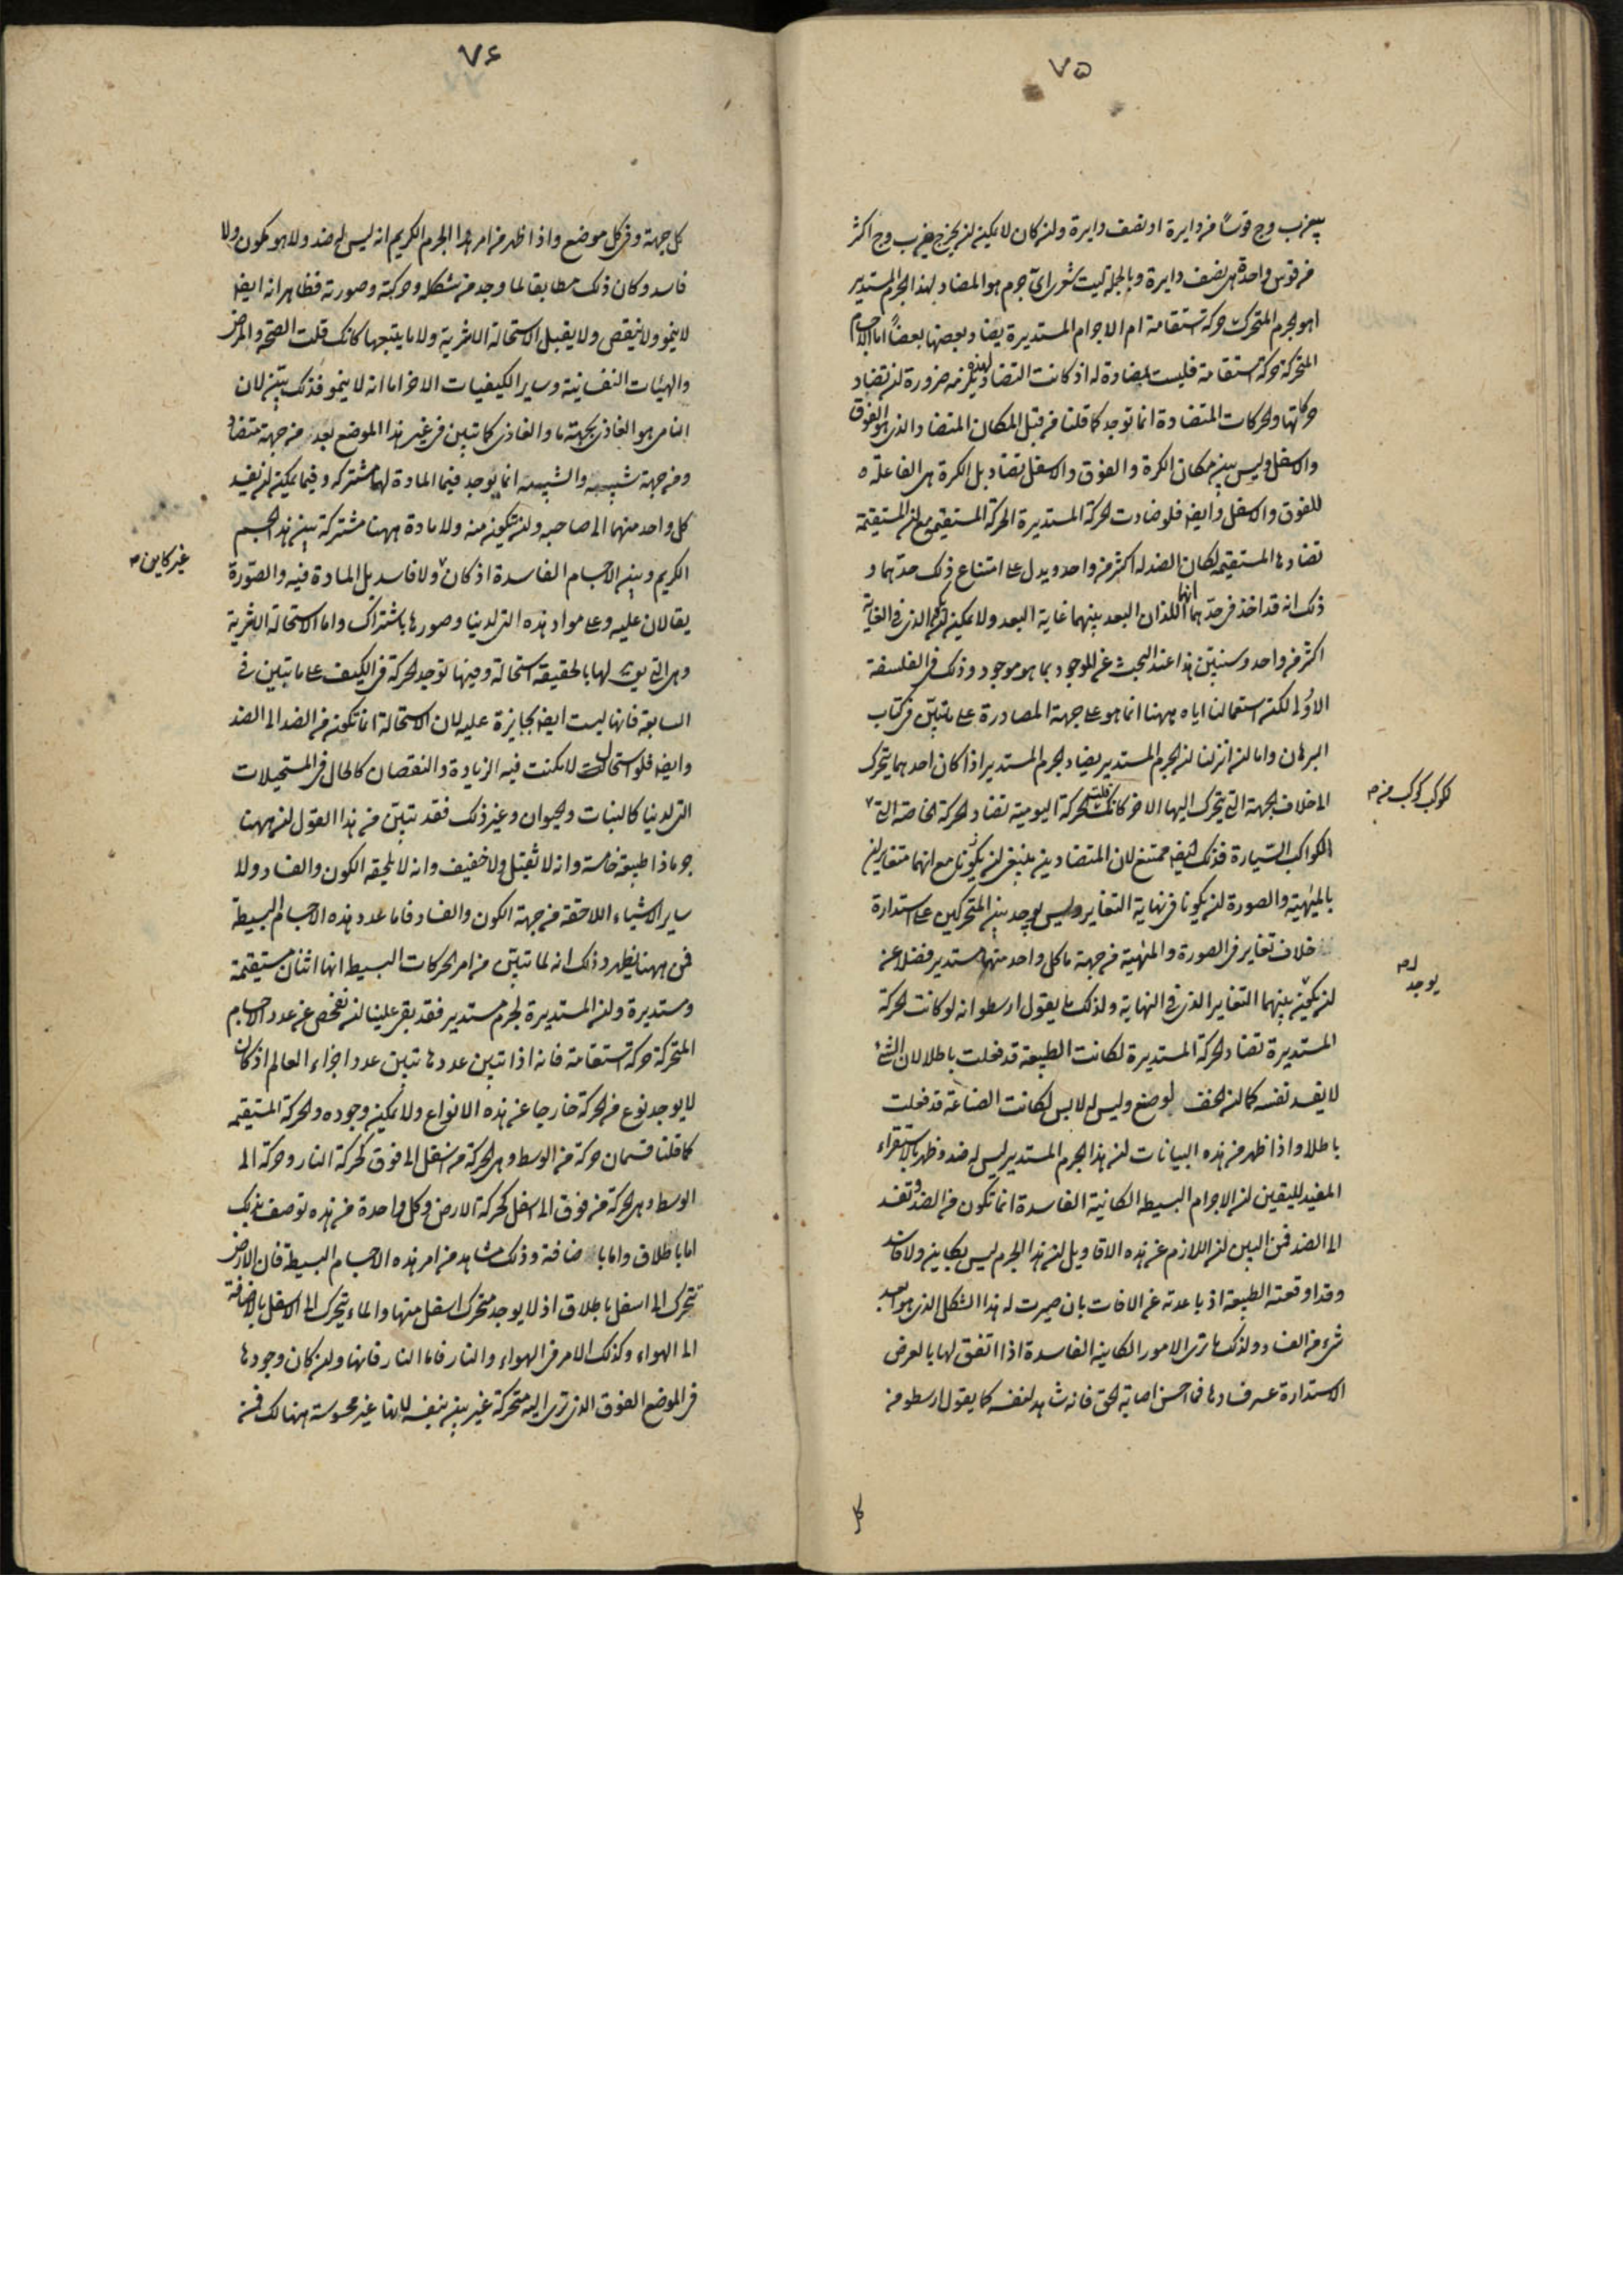 ٧٥
بين ب وج قوسًا من دايرة او نصف دايرة وان كان لا يمكن ان يخرج بين ب وج اكثر
من قوس واحدة هى نصف دايرة وبالجملة ليت شعرى اى جرم هو المضاد لهذا الجرم المستدير
اهو الجرم المتحرك حركة استقامة ام الاجرام المستديرة يضاد بعضها بعضًا اما الاجسام
المتحركة حركة استقامة فليست بمضادة له اذ كانت التضاد يلزمه ضرورة ان تضاد
حركاتها والحركات المتضادة انما توجد كما قلنا من قبل المكان المتضاد الذى هو الفوق
والاسفل وليس بين مكان الكرة والفوق والاسفل تضاد بل الكرة هى الفاعلة
للفوق والاسفل وايضا فلو ضادت الحركة المستديرة الحركة المستقيمة مع ان المستقيمة
تضادها المستقيمة لكان الضد له اكثر من واحد ويدل على امتناع ذلك حدّهما و
ذلك انه قد اخذ فى حدّهما انهما اللذان البعد بينهما غاية البعد ولا يمكن ان يكون الذى فى الغاية
اكثر من واحد وسنبيّن هذا عند البحث عن الموجود بما هو موجود وذلك فى الفلسفة
الاولى لكن استعمالنا اياه ههنا انما هو على جهة المصادرة على ما تبيّن فى كتاب
البرهان واما ان انزلنا ان الجرم المستدير يضاد الجرم المستدير اذا كان احدهما يتحرك
الى خلاف الجهة التى يتحرك اليها الاخر كانك قلت الحركة اليومية تضاد الحركة الخاصة التى
لكوكب كوكب من
الكواكب السّيارة فذلك ايضا ممتنع لان المتضادين ينبغى ان يكونا مع انهما متغايرين
بالمهيّة والصورة ان يكونا فى نهاية التغاير وليس يوجد بين المتحركين على استدارة
خلاف تغاير فى الصورة والمهيّة من جهة ما كل واحد منهما مستدير فضلا عن
يوجد
ان يكون بينهما التغاير الذى فى النهاية ولذلك ما يقول ارسطو انه لو كانت الحركة
المستديرة تضاد الحركة المستديرة لكانت الطبيعة قد فعلت باطلا لان الشئ
لا يفسد نفسه كما ان الخف لو صنع وليس له لابس لكانت الصناعة قد فعلت
باطلا واذا ظهر من هذه البيانات ان هذا الجرم المستدير ليس له ضد وظهر بالاستقراء
المفيد لليقين ان الاجرام البسيطة الكائنة الفاسدة انما تكون من الضد وتفسد
الى الضد فمن البين ان اللازم عن هذه الاقاويل ان هذا الجرم ليس بكاين ولا فاسد
وقد اوقعته الطبيعة اذ باعدته عن الافات بان صيرت له هذا الشكل الذى هو ابعد
شئ من الفساد ولذلك ما ترى الامور الكاينة الفاسدة اذا اتفق لها بالعرض
الاستدارة عسر فسادها فما احسن اصابة الحق فانه شاهد لنفسه كما يقول ارسطو من
كل
٧٦
كل جهة وفى كل موضع واذا ظهر من امر هذا الجرم الكريم انه ليس له ضد ولا هو مكون ولا
فاسد وكان ذلك مطابقا لما وجد من شكله وحركته وصورته فظاهر انه ايضا
لا ينمو ولا ينقص ولا يقبل الاستحالة الاثرية ولا ما يتبعها كانك قلت الصحة والمرض
والهيئات النفسانية وساير الكيفيات الاخر اما انه لا ينمو فذلك بيّن لان
النامى هو الغاذى بجهة ما والغاذى كما تبين فى غير هذا الموضع بعد من جهة متضاد
ومن جهة شبيه والشبيه انما يوجد فيما المادة لهما مشتركة وفيما يمكن ان يفسد
كل واحد منهما الى صاحبه وان يتكون منه ولا مادة ههنا مشتركة بين هذا الجسم
الكريم وبين الاجسام الفاسدة اذ كان ولا فاسد بل المادة فيه والصّورة
غير كاين
يقالان عليه وعلى مواد هذه التى لدينا وصورها باشتراك واما الاستحالة الاثرية
وهى التى يق لها بالحقيقة استحالة وفيها توجد الحركة فى الكيف على ما تبين فى
السابعة فانها ليست ايضا بجايزة عليه لان الاستحالة انما تكون من الضد الى الضد
وايضا فلو استحال لامكنت فيه الزيادة والنقصان كالحال فى المستحيلات
التى لدينا كالنبات والحيوان وغير ذلك فقد تبيّن من هذا القول ان ههنا
جرما ذا طبيعة خامسة وانه لا ثقيل ولا خفيف وانه لا يلحقه الكون والفساد ولا
ساير الاشياء اللاحقة من جهة الكون والفساد فاما عدد هذه الاجسام البسيطة
فمن ههنا يظهر وذلك انه لما تبيّن من امر الحركات البسيط انها اثنان مستقيمة
ومستديرة وان المستديرة لجرم مستدير فقد بقى علينا ان نفحص عن عدد الاجسام
المتحركة حركة استقامة فانه اذا تبين عددها تبين عدد اجزاء العالم اذ كان
لا يوجد نوع من الحركة خارجا عن هذه الانواع ولا يمكن وجوده والحركة المستقيمة
كما قلنا قسمان حركة من الوسط وهى الحركة من اسفل الى فوق كحركة النار وحركة الى
الوسط وهى الحركة من فوق الى اسفل كحركة الارض وكل واحدة من هذه توصف بذلك
اما باطلاق واما باضافة وذلك مشاهد من امر هذه الاجسام البسيطة فان الارض
تتحرك الى اسفل باطلاق اذ لا يوجد متحرك اسفل منها والماء يتحرك الى الاسفل بالاضافة
الى الهواء وكذلك الامر فى الهواء والنار فاما النار فانها وان كان وجودها
فى الموضع الفوق الذى ترى اليه متحركة غير بين بنفسه لانها غير محسوسة هنالك فمن